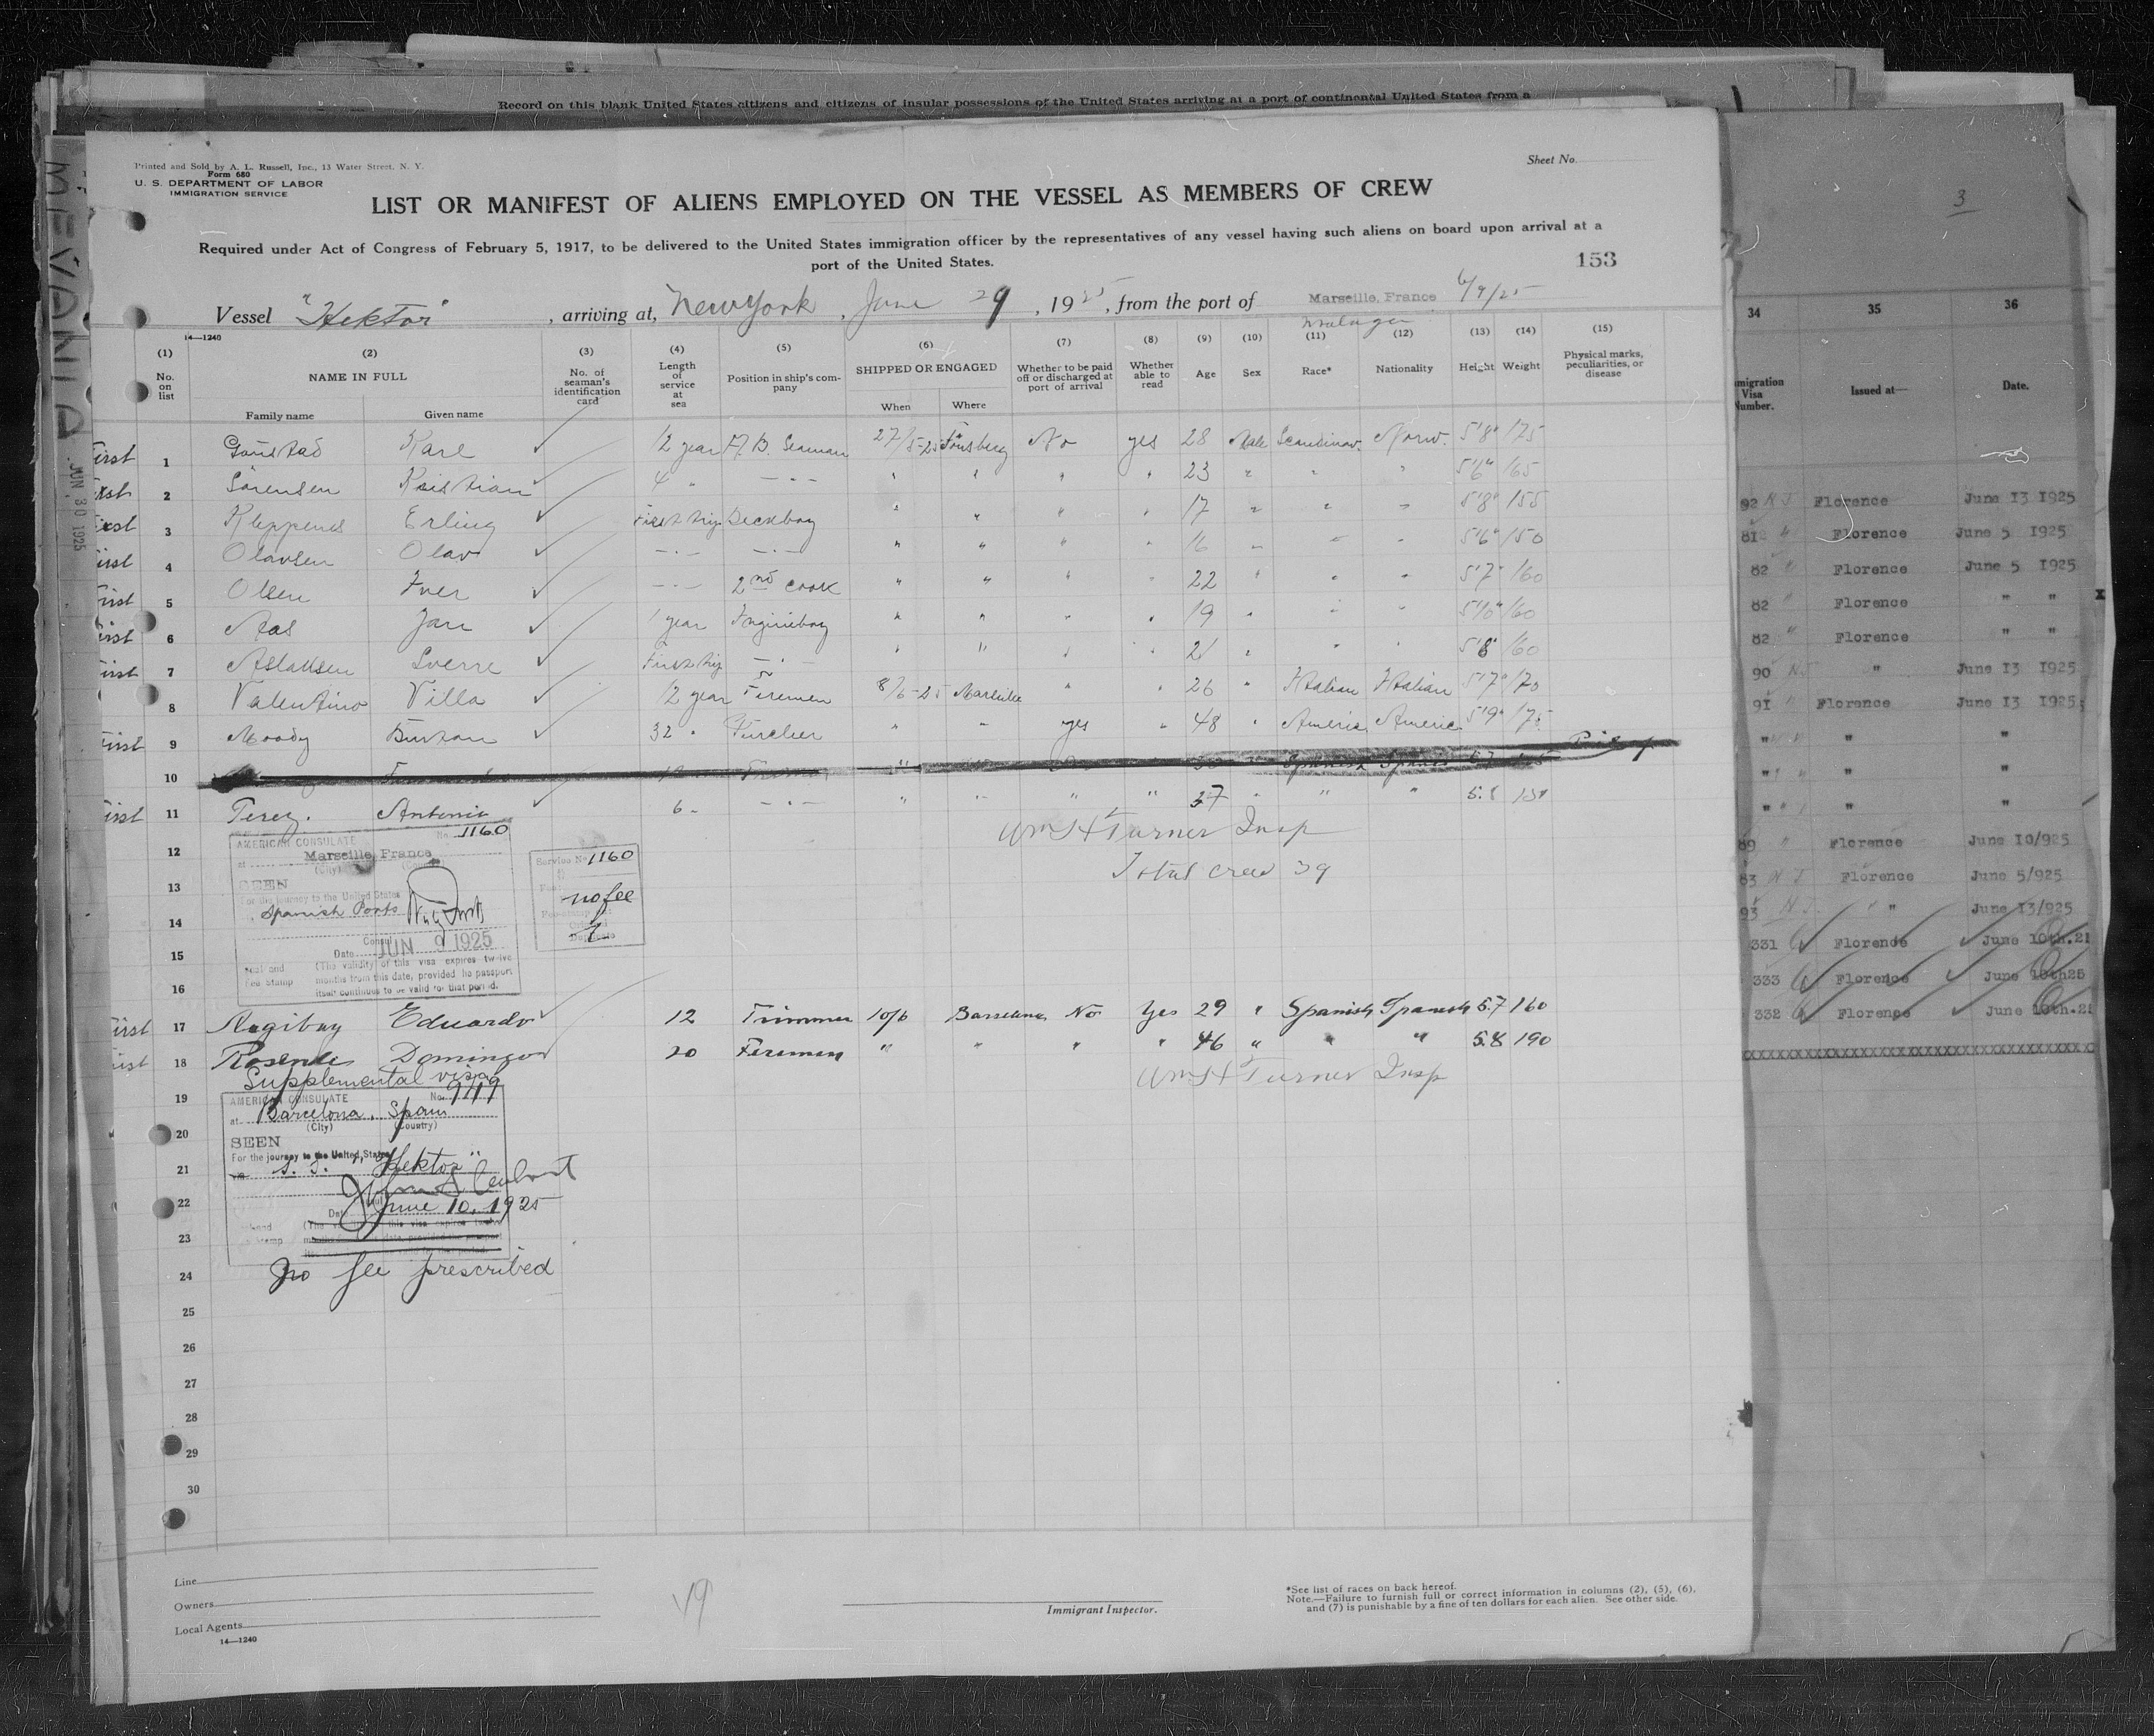 Record on this blank United States citizens and citizens of insular possessions of the United States arriving at a port of continental United States from a
Printed and Sold by A. L. Russell, Inc., 13 Water Street, N. Y.
Form 680
U. S. DEPARTMENT OF LABOR
IMMIGRATION SERVICE
Sheet No.
LIST OR MANIFEST OF ALIENS EMPLOYED ON THE VESSEL AS MEMBERS OF CREW
Required under Act of Congress of February 5, 1917, to be delivered to the United States immigration officer by the representatives of any vessel having such aliens on board upon arrival at a
port of the United States.
153
Vessel "Hektor", arriving at, New York, June 29, 1925, from the port of Marseille, France 6/9/25
Malaga
14—1240
(1) (2) (3) (4) (5) (6) (7) (8) (9) (10) (11) (12) (13) (14) (15)
No. on list
NAME IN FULL
Family name Given name
No. of seaman's identification card
Length of service at sea
Position in ship's company
SHIPPED OR ENGAGED
When Where
Whether to be paid off or discharged at port of arrival
Whether able to read
Age Sex Race* Nationality Height Weight
Physical marks, peculiarities, or disease
1 Karl 12 year A. B. Seaman 27/5-25 Tönsberg No yes 28 Male Scandinav. Norw. 5'8" 175
2 Sörensen Kristian 4 " — " — " " " " 23 " " " 5'6" 165
3 Erling First trip Deckboy " " " " 17 " " " 5'8" 155
4 Olavsen Olav — " — — " — " " " " 16 " " " 5'6" 150
5 Olsen Iver — " — 2nd cook " " " " 22 " " " 5'7" 160
6 Aas Jan 1 year " " " " 19 " " " 5'10" 160
7 Aslaksen Sverre First trip — " — " " " " 21 " " " 5'8" 160
8 Valentino Villa 12 year Firemen 8/6-25 Marseille " " 26 " Italian Italian 5'7" 170
9 Moody Burton 32 " " " yes " 48 " America America 5'9" 175
10 Spanish Spanish
11 Perez. Antonio 6 - — " — " " " " 37 " " " 5.8
12
AMERICAN CONSULATE No. 1160
at Marseille, France
(City) (Country)
SEEN
For the journey to the United States
Spanish Ports
Consul
Date JUN 9 1925
Seal and Fee Stamp
(The validity of this visa expires twelve
months from this date, provided he passport
itself continues to be valid for that period.
Service No. 1160
no fee
Wm H Turner Insp
Total crew 39
13
14
15
16
17 Eduardo 12 Trimmer 10/6 Barcelona No Yes 29 " Spanish Spanish 5.7 160
18 Rosende Domingo 20 Firemen " " " " 46 " " " 5.8 190
Supplemental visa
Wm H Turner Insp
19
AMERICAN CONSULATE No.
at Barcelona, Spain
(City) (Country)
20
SEEN
For the journey to the United States
21
S. S. "Hektor"
22
Date June 10, 1925
23
No fee prescribed
24
25
26
27
28
29
30
Line
Owners
Local Agents
14—1240
Immigrant Inspector.
*See list of races on back hereof.
Note.—Failure to furnish full or correct information in columns (2), (5), (6),
and (7) is punishable by a fine of ten dollars for each alien. See other side.
JUN 30 1925
3
34 35 36
Immigration Visa Number. Issued at— Date.
92 N J Florence June 13 1925
Florence June 5 1925
82 " Florence June 5 1925
82 " Florence " "
82 " Florence " "
90 NJ " June 13 1925
91 " Florence June 13 1925
" " "
" " "
" " "
89 " Florence June 10/925
83 N J Florence June 5/925
93 N J. " " June 13/925
331 Florence June 10th.
333 Florence June 10th25
332 Florence June 10th.
XXXXXXXXXXXXXXXXXXXXXXXXXXXXXXXXXXXXXXXX